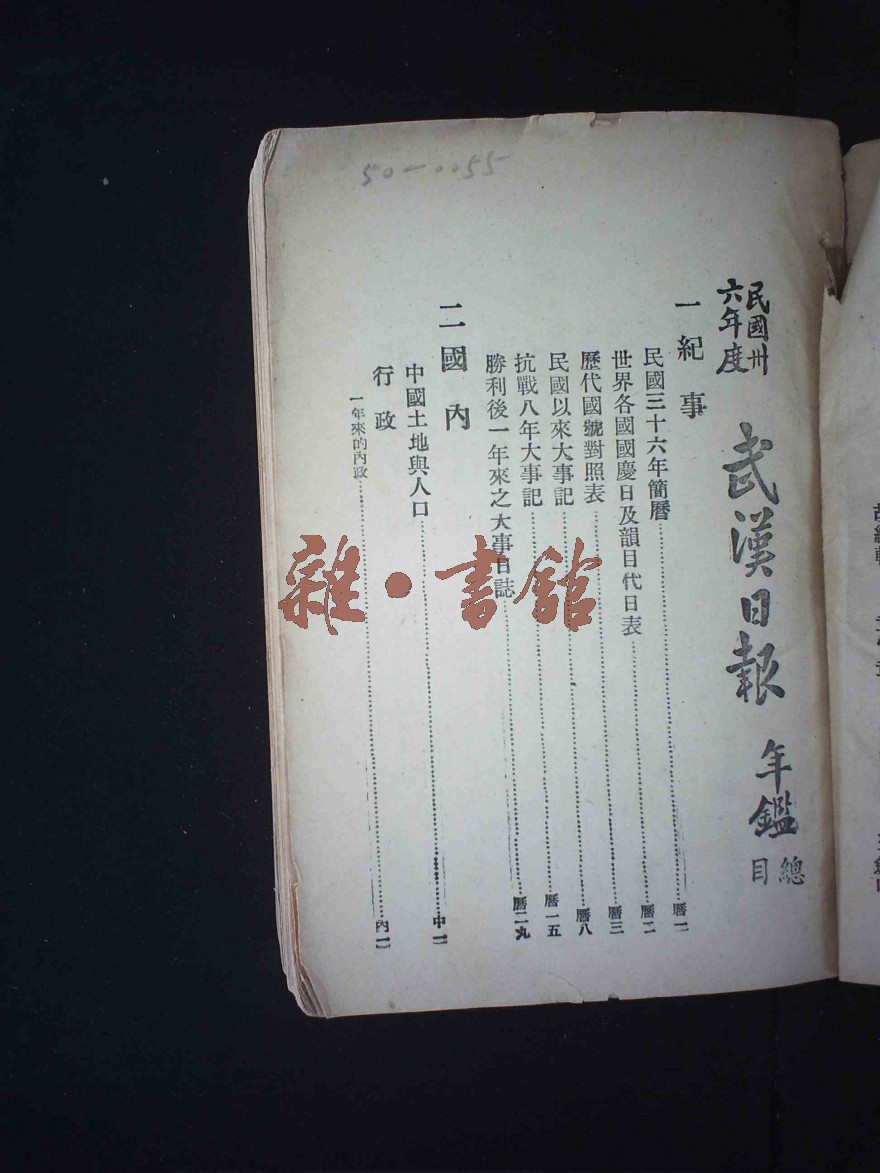 50-0055
民國卅
六年度
武漢日報
年鑑
總
目
一 紀事
民國三十六年簡曆……曆一
世界各國國慶日及韻目代日表……曆二
歷代國號對照表……曆三
民國以來大事記……曆八
抗戰八年大事記……曆一五
勝利後一年來之大事日誌……曆二九
二 國內
中國土地與人口……中一
行政
一年來的內政……內一
雜·書館